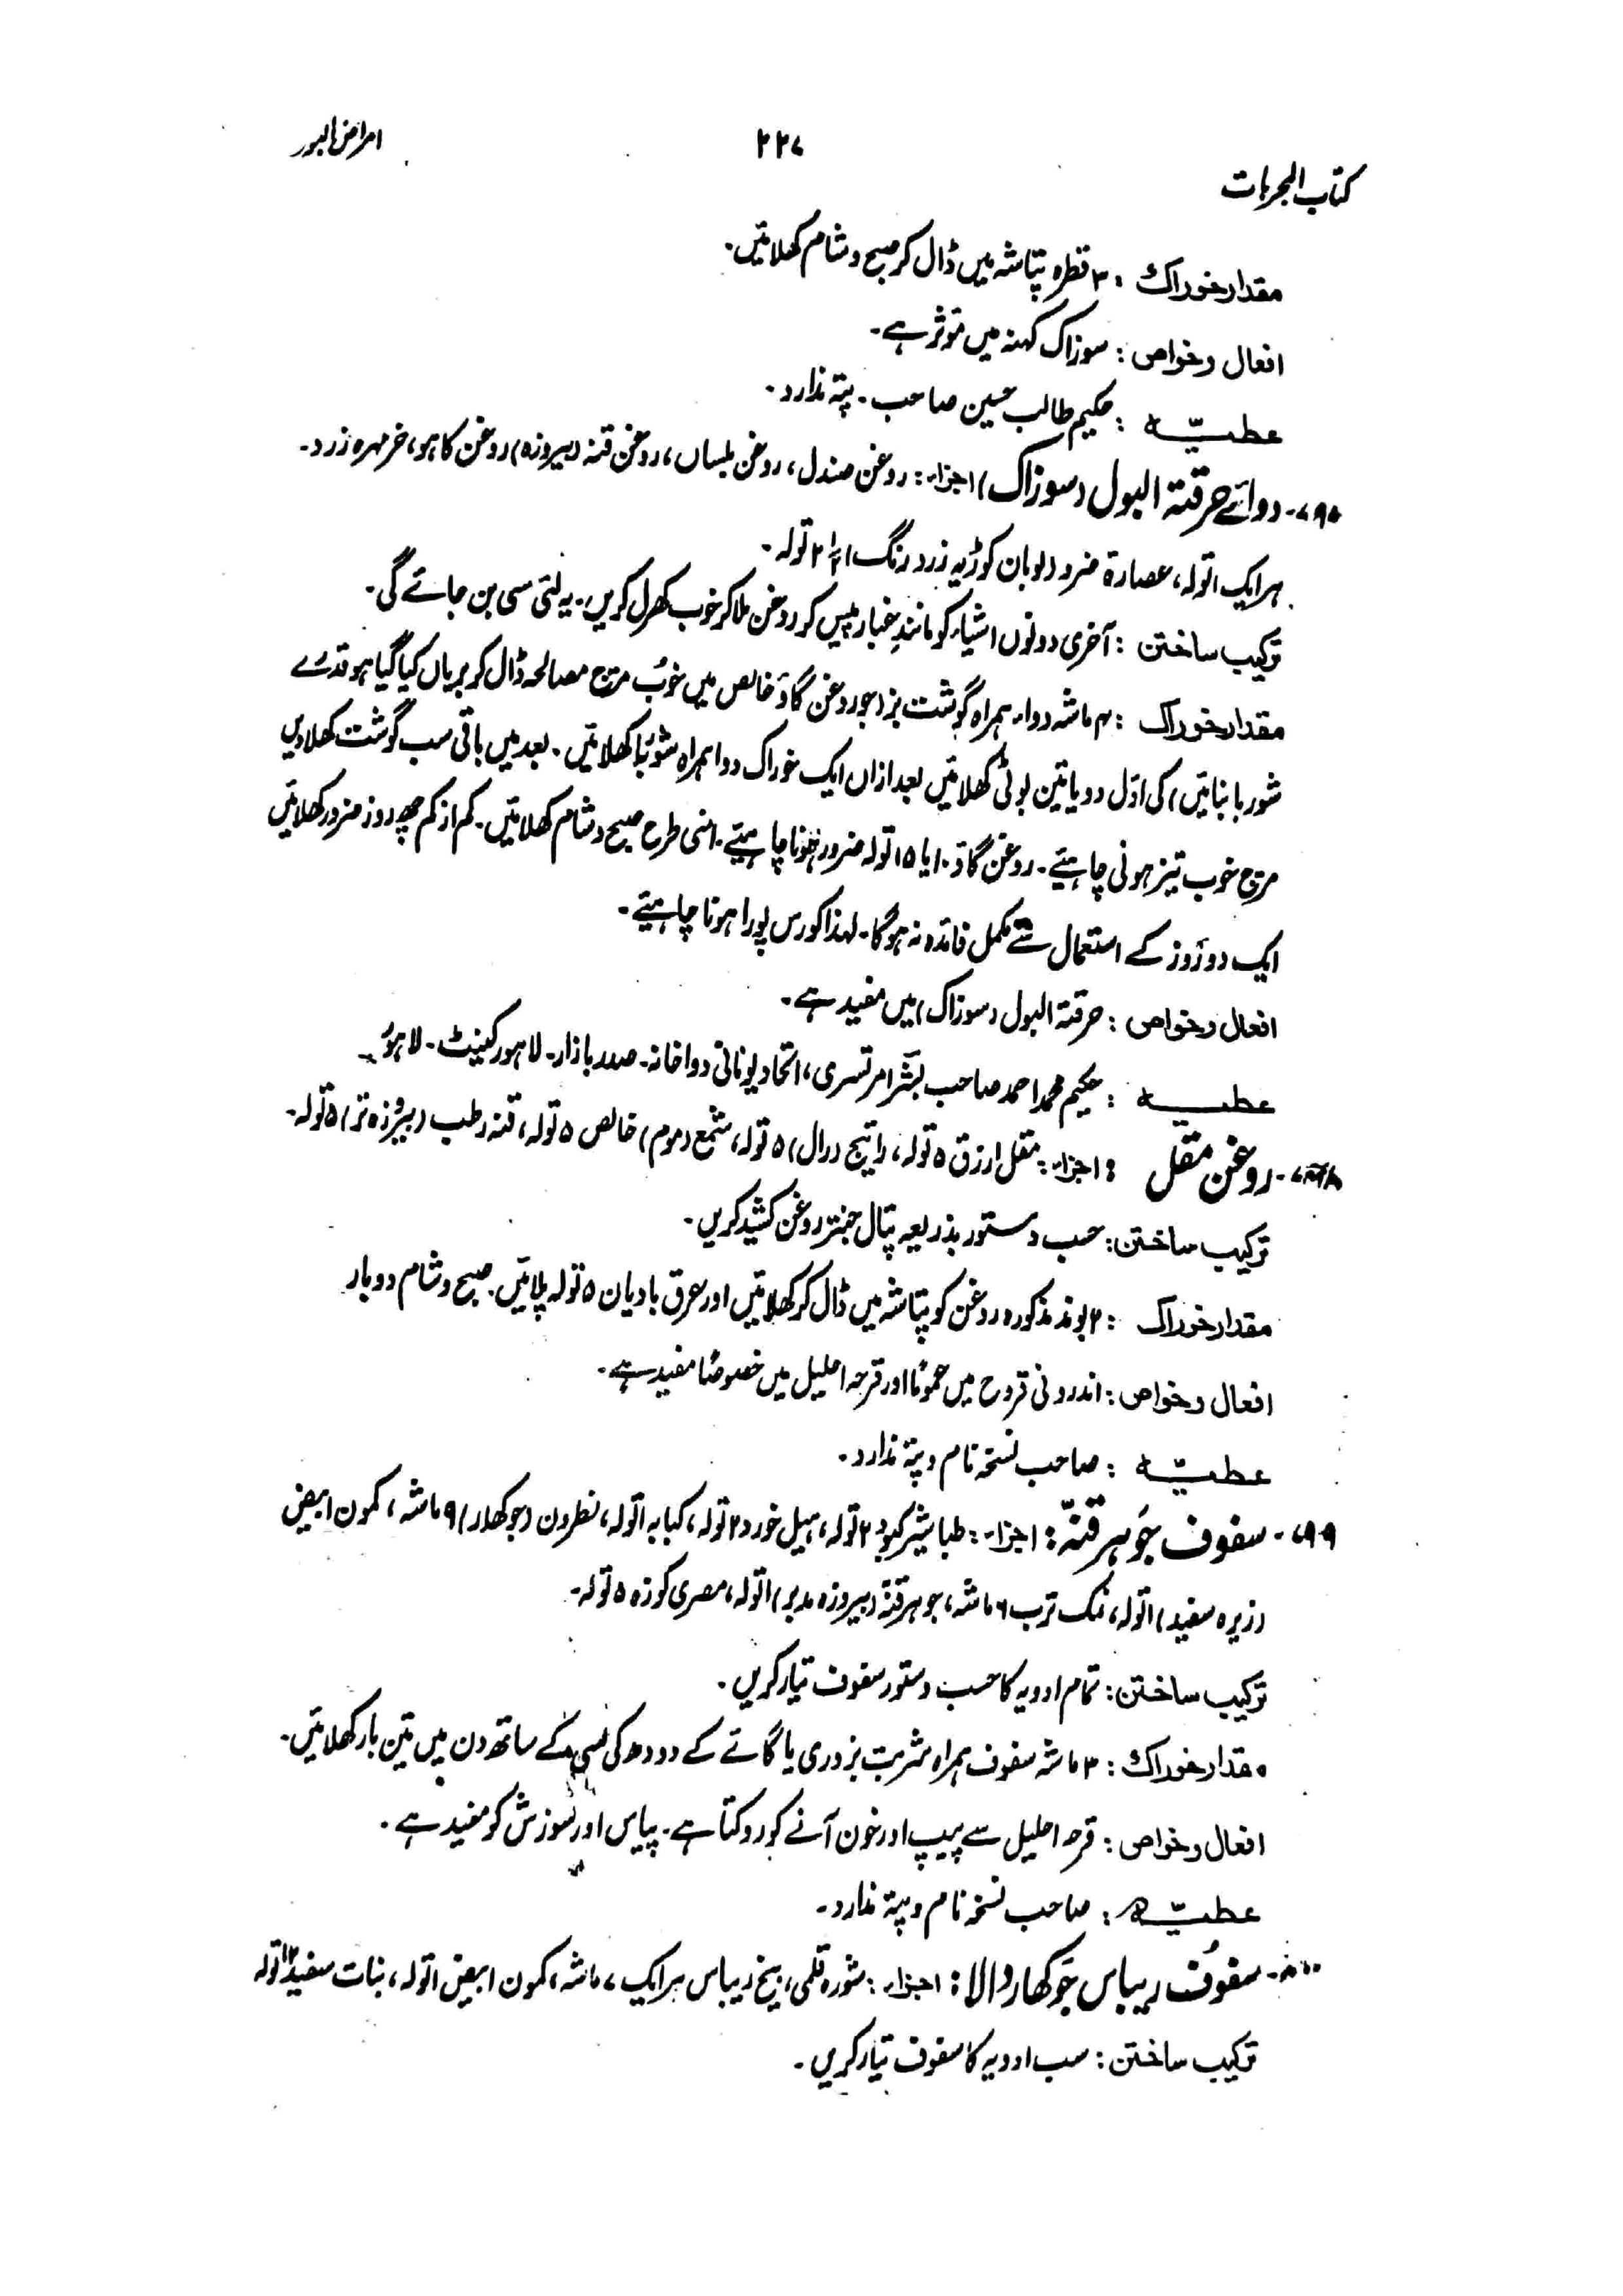 امراض البور
۲۲۷
کتاب المجربات
مقدار خوراک : ۳ قطرہ بتاشہ میں ڈال کر صبح و شام کھلائیں۔
افعال و خواص : سوزاک کہنہ میں مؤثر ہے۔
عطیّہ : حکیم طالب حسین صاحب۔ پتہ ندارد۔
دوائے حرقتہ البول (سوزاک) اجزاء : روغن صندل، روغن بلساں، روغن قنہ (بیروزہ) روغن کاہو، خرمہرہ زرد۔
ہر ایک ۱تولہ، عصارۃ ضرو (لوبان کوڑیہ زرد رنگ) ۲½ تولہ۔
ترکیب ساختن : آخری دونوں اشیاء کو مانند غبار پیس کر روغن ملا کر خوب کھرل کریں۔ یہ لئی سی بن جائے گی۔
مقدار خوراک : ۳ ماشہ دواء ہمراہ گوشت بز (جو روغن گاؤ خالص میں خوب مرچ مصالحہ ڈال کر بریاں کیا گیا ہو قدرے
شوربا بنائیں) کی اوّل دو یا تین بوٹی کھلائیں بعد ازاں ایک خوراک دوا ہمراہ شوربا کھلائیں۔ بعد میں باقی سب گوشت کھلادیں
مرچ خوب تیز ہونی چاہیئے۔ روغن گاؤ ۱۰ یا ۱۵ تولہ ضرور ہونا چاہیئے۔ اسی طرح صبح و شام کھلائیں۔ کم از کم چھ روز ضرور کھلائیں
ایک دو روز کے استعمال سے مکمل فائدہ نہ ہوگا۔ لہذا کورس پورا ہونا چاہیئے۔
افعال و خواص : حرقتہ البول (سوزاک) میں مفید ہے۔
عطیہ : حکیم محمد احمد صاحب بشر امرتسری، اتحاد یونانی دواخانہ۔ صدر بازار۔ لاہور کینٹ۔ لاہور
روغن مقل : اجزاء : مقل ارزق ۵ تولہ، راتینج (رال) ۵ تولہ، شمع (موم) خالص ۵ تولہ، قنہ رطب (بیروزہ تر) ۵ تولہ۔
ترکیب ساختن : حسب دستور بذریعہ پتال جنتر روغن کشید کریں۔
مقدار خوراک : ۲ بوند مذکورہ روغن کو بتاشہ میں ڈال کر کھلائیں اور عرق بادیان ۵ تولہ پلائیں۔ صبح و شام دو بار
افعال و خواص : اندرونی قروح میں عموماً اور قرحہ احلیل میں خصوصاً مفید ہے۔
عطیّہ : صاحب نسخہ نام و پتہ ندارد۔
۷۹۹۔ سفوف جوہر قنّہ : اجزاء : طباشیر کبود ۲ تولہ، ہیل خورد ۲ تولہ، کبابہ ۱تولہ، نطرون (جوکھار) ۹ ماشہ، کمون ابیض
(زیرہ سفید) ۱تولہ، نمک ترب ۶ ماشہ، جوہر قنّہ (بیروزہ مدبر) ۱تولہ، مصری کوزہ ۵ تولہ۔
ترکیب ساختن : تمام ادویہ کا حسب دستور سفوف تیار کریں۔
مقدار خوراک : ۳ ماشہ سفوف ہمراہ شربت بزوری یا گائے کے دودھ کی لسی کے ساتھ دن میں تین بار کھلائیں۔
افعال و خواص : قرحہ احلیل سے پیپ اور خون آنے کو روکتا ہے۔ پیاس اور سوزش کو مفید ہے۔
عطیّہ : صاحب نسخہ نام و پتہ ندارد۔
۸۰۰۔ سفوف ریباس جوکھار والا : اجزاء : شورہ قلمی، بیخ ریباس ہر ایک ۷ ماشہ، کمون ابیض ۱تولہ، نبات سفید تولہ
ترکیب ساختن : سب ادویہ کا سفوف تیار کریں۔